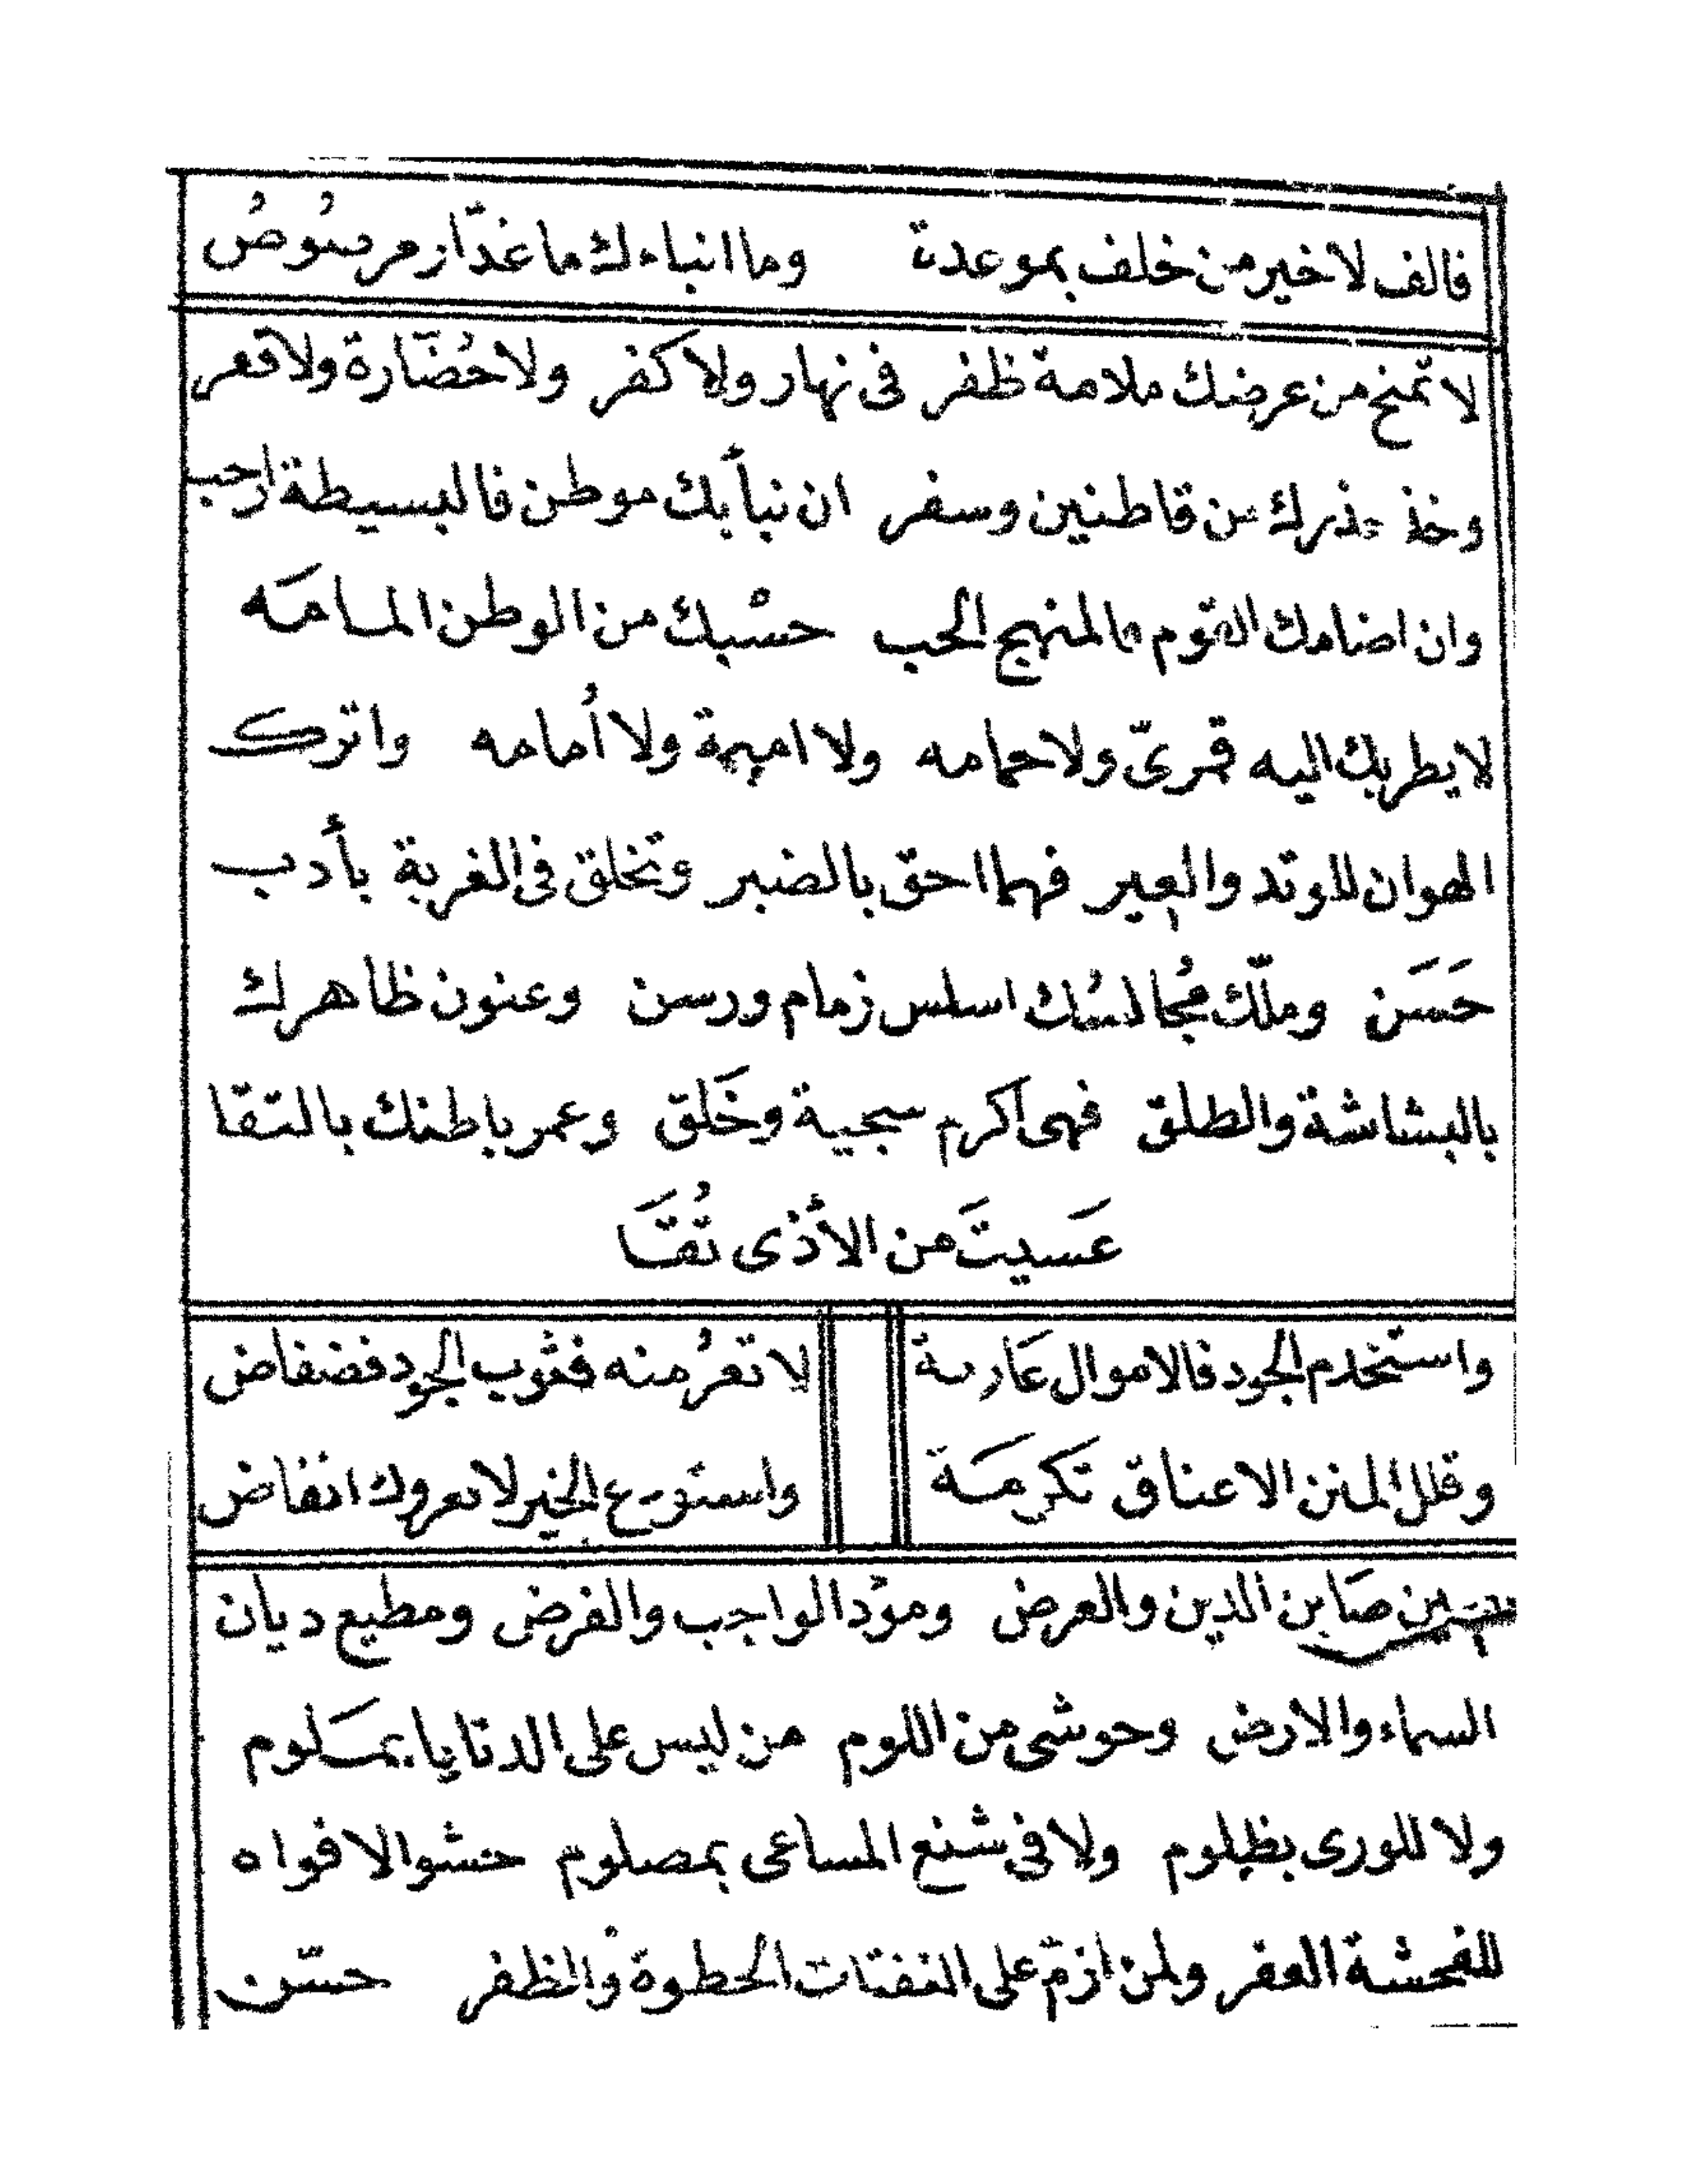 فالف لا خير من خلف بموعدة وما انباءك ما غدّار مرصُوصُ
لا تمنح من عرضك ملامة ظفر فى نهار ولا كفر ولا حُضّارة ولا قعر
وخذ حذرك من قاطنين وسفر ان نبأ بك موطن فالبسيطة ارحب
وان اضامك القوم فالمنهج الحب حسْبك من الوطن المسامَه
لا يطربك اليه قمرىّ ولا حمامه ولا اميمة ولا أُمامه واترك
الهوان للوتد والعير فهما احق بالضير وتخلق فى الغربة بأدب
حَسَن وملّك مُجالسُك اسلس زمام ورسن وعنون ظاهرك
بالبشاشة والطلق فهى اكرم سجية وخَلق وعمر باطنك بالتقا
عَسيتَ من الأذى تُقَّا
واستخدم الجود فالاموال عَارية لا تعرُ منه فثوب الجود فضفاض
وقلل المنن الاعناق تكرمَة واستودع الخير لا يعروك انفاض
صَاين الدين والعرض ومؤد الواجب والفرض ومطيع ديان
السماء والارض وحوشى من اللوم من ليس على الدنايا بمَلوم
ولا للورى بظلوم ولا فى شنع المساعى بمصلوم حشو الافواه
للفحشة العفر ولمن ازمّ على النفثات الحظوة والظفر حسّن